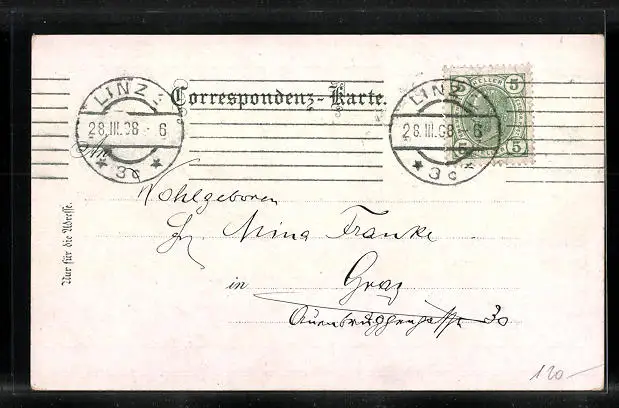 LINZ 3
28.III.08 - 6
* 3c *
Correspondenz-Karte.
LINZ
28.III.08 6
3c *
5 HELLER 5
5 5
Nur für die Adresse.
Wohlgeboren
Mina Franke
in Graz
Auenbruggergasse 30
120.-